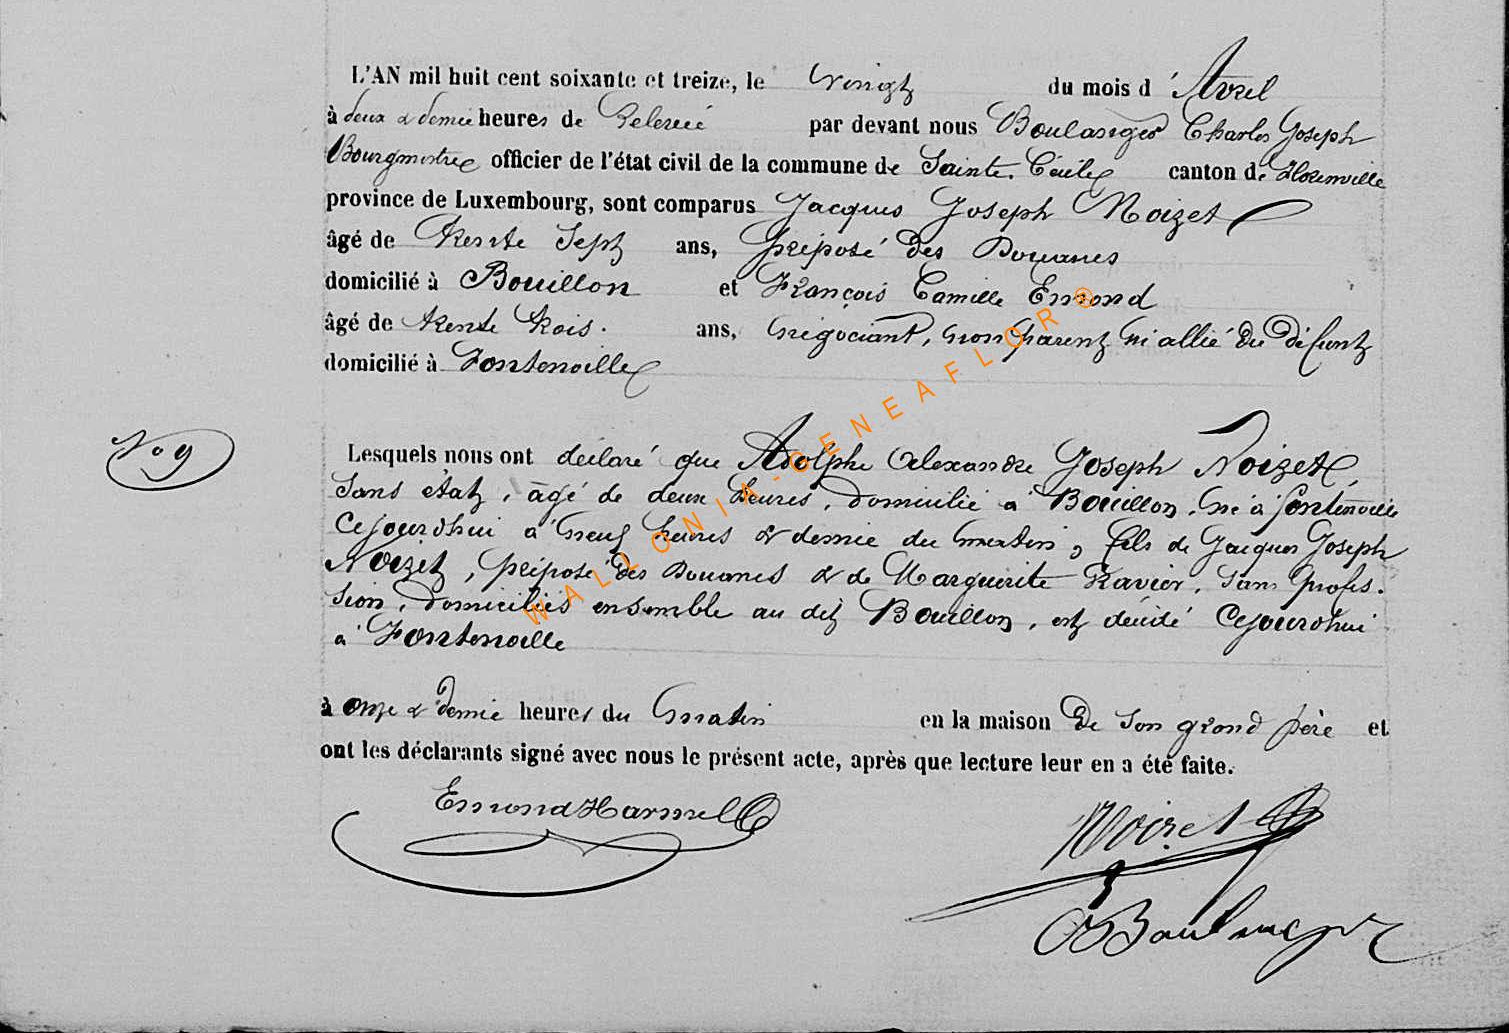 L'AN mil huit cent soixante et treize, le vingt du mois d'Avril
à deux & demie heures de Relevée par devant nous Boulanger Charles Joseph
Bourgmestre officier de l'état civil de la commune de Sainte-Cécile canton de Florenville
province de Luxembourg, sont comparus Jacques Joseph Noizet
âgé de trente sept ans, préposé des Douanes
domicilié à Bouillon et François Camille Emond
âgé de trente trois. ans, négociant, non parent ni allié du défunt
domicilié à Fontenoille
No 9
Lesquels nous ont déclaré que Adolphe Alexandre Joseph Noizet,
sans état, âgé de deux heures, domicilié à Bouillon, né à fontenoille
cejourdhui à neuf heures & demie du matin, fils de Jacques Joseph
Noizet, préposé des Douanes & de Marguerite Ravier, sans profes-
sion, domiciliés ensemble au dit Bouillon, est décédé cejourdhui
à Fontenoille
à onze & demie heures du matin en la maison de son grand père et
ont les déclarants signé avec nous le présent acte, après que lecture leur en a été faite.
Emond Harmel
Noizet
Boulanger
WALLONIA-GENEAFLOR®